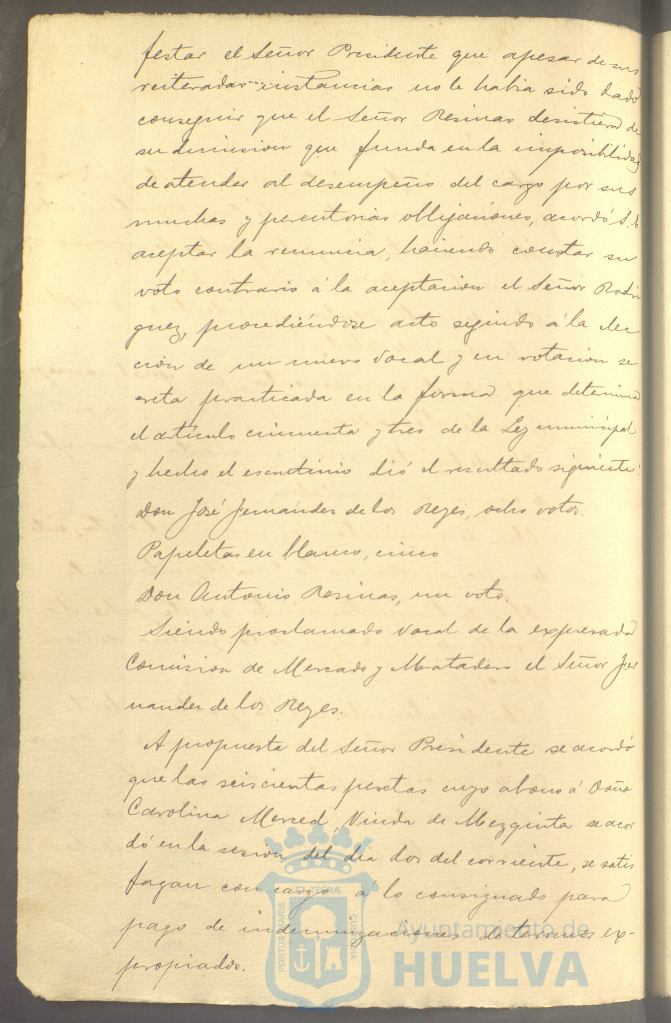 festar el Señor Presidente que apesar de sus
reiteradas instancias no le habia sido dado
conseguir que el Señor Resinas desistiera de
su dimision que funda en la imposibilidad
de atender al desempeño del cargo por sus
muchas y perentorias obligaciones, acordó S. E.
aceptar la renuncia, haciendo constar su
voto contrario á la aceptacion el Señor Rodri
guez, procediéndose acto seguido á la elec
ción de un nuevo vocal y en votación se
creta practicada en la forma que determina
el artículo cincuenta y tres de la Ley municipal
y hecho el escrutinio dió el resultado siguiente:
Don José Fernandez de los Reyes, ocho votos.
Papeletas en blanco, cinco
Don Antonio Resinas, un voto.
Siendo proclamado vocal de la expresada
Comision de Mercado y Matadero el Señor Fer
nandez de los Reyes.
A propuesta del Señor Presidente se acordó
que las seiscientas pesetas cuyo abono á Doña
Carolina Merced, Viuda de Mezquita se acor
dó en la sesión del dia dos del corriente, se satis
fagan con cargo á lo consignado para
pago de indemnizaciones de terrenos ex-
propiados.
PORTUS MARIS ET TERRÆ CUSTODIA
Ayuntamiento de
HUELVA